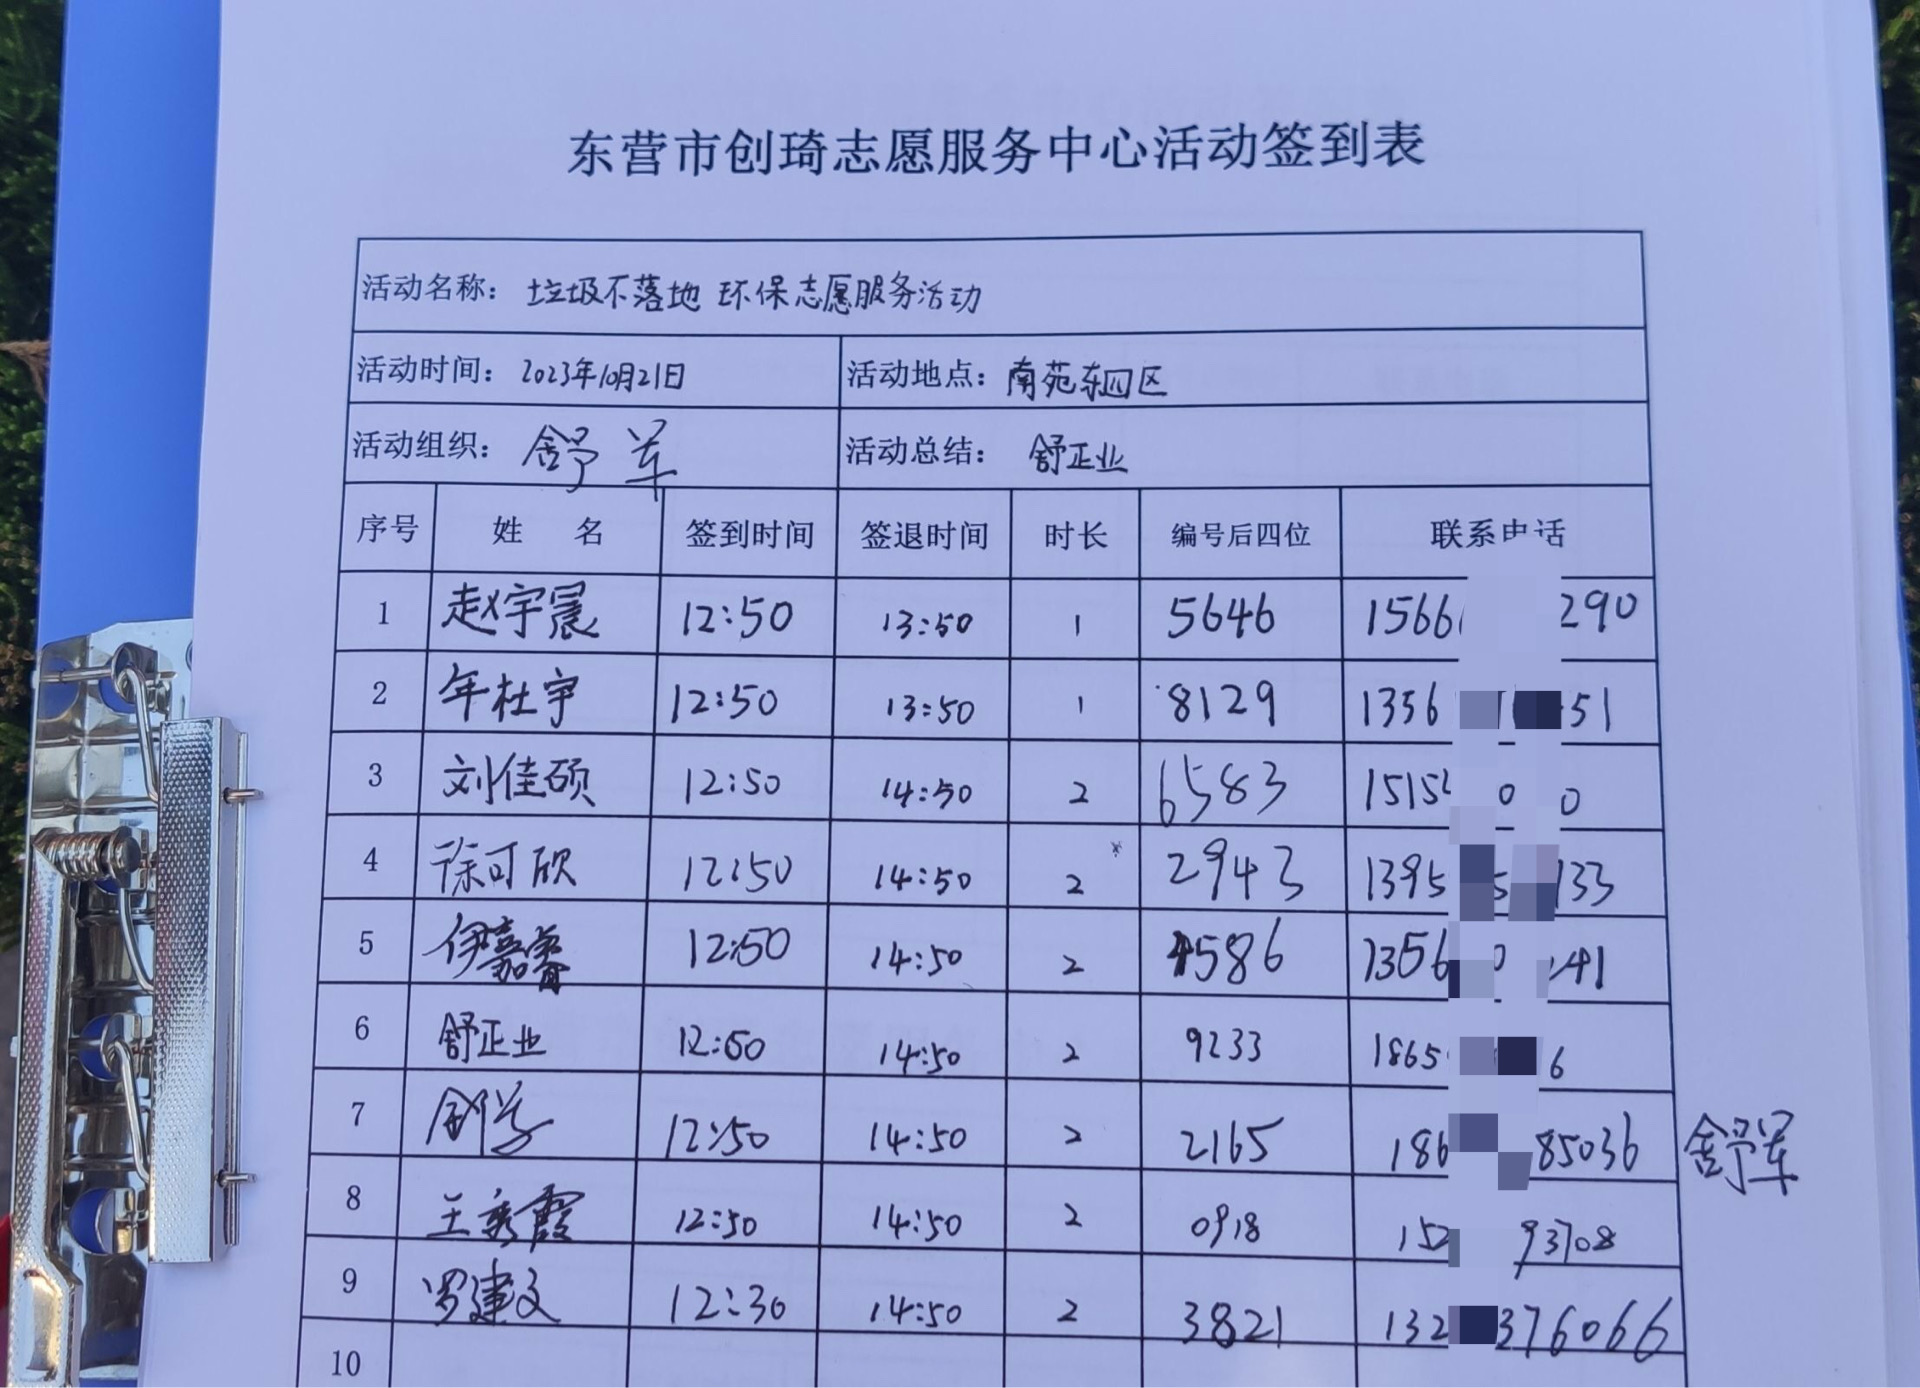 东营市创琦志愿服务中心活动签到表
活动名称： 垃圾不落地 环保志愿服务活动
活动时间： 2023年10月21日 活动地点： 南苑东四区
活动组织： 舒军 活动总结： 舒正业
序号 姓 名 签到时间 签退时间 时长 编号后四位 联系电话
1 赵宇晨 12:50 13:50 1 5646 1566 290
2 年杜宇 12:50 13:50 1 8129 1356 51
3 刘佳硕 12:50 14:50 2 6583 1515 0 0
4 徐可欣 12:50 14:50 2 2943 1395 5 133
5 伊嘉睿 12:50 14:50 2 4586 1356 0 41
6 舒正业 12:50 14:50 2 9233 1865 6
7 12:50 14:50 2 2165 186 85036 舒军
8 王秀霞 12:50 14:50 2 0918 152 93708
9 罗建文 12:30 14:50 2 3821 132 376066
10